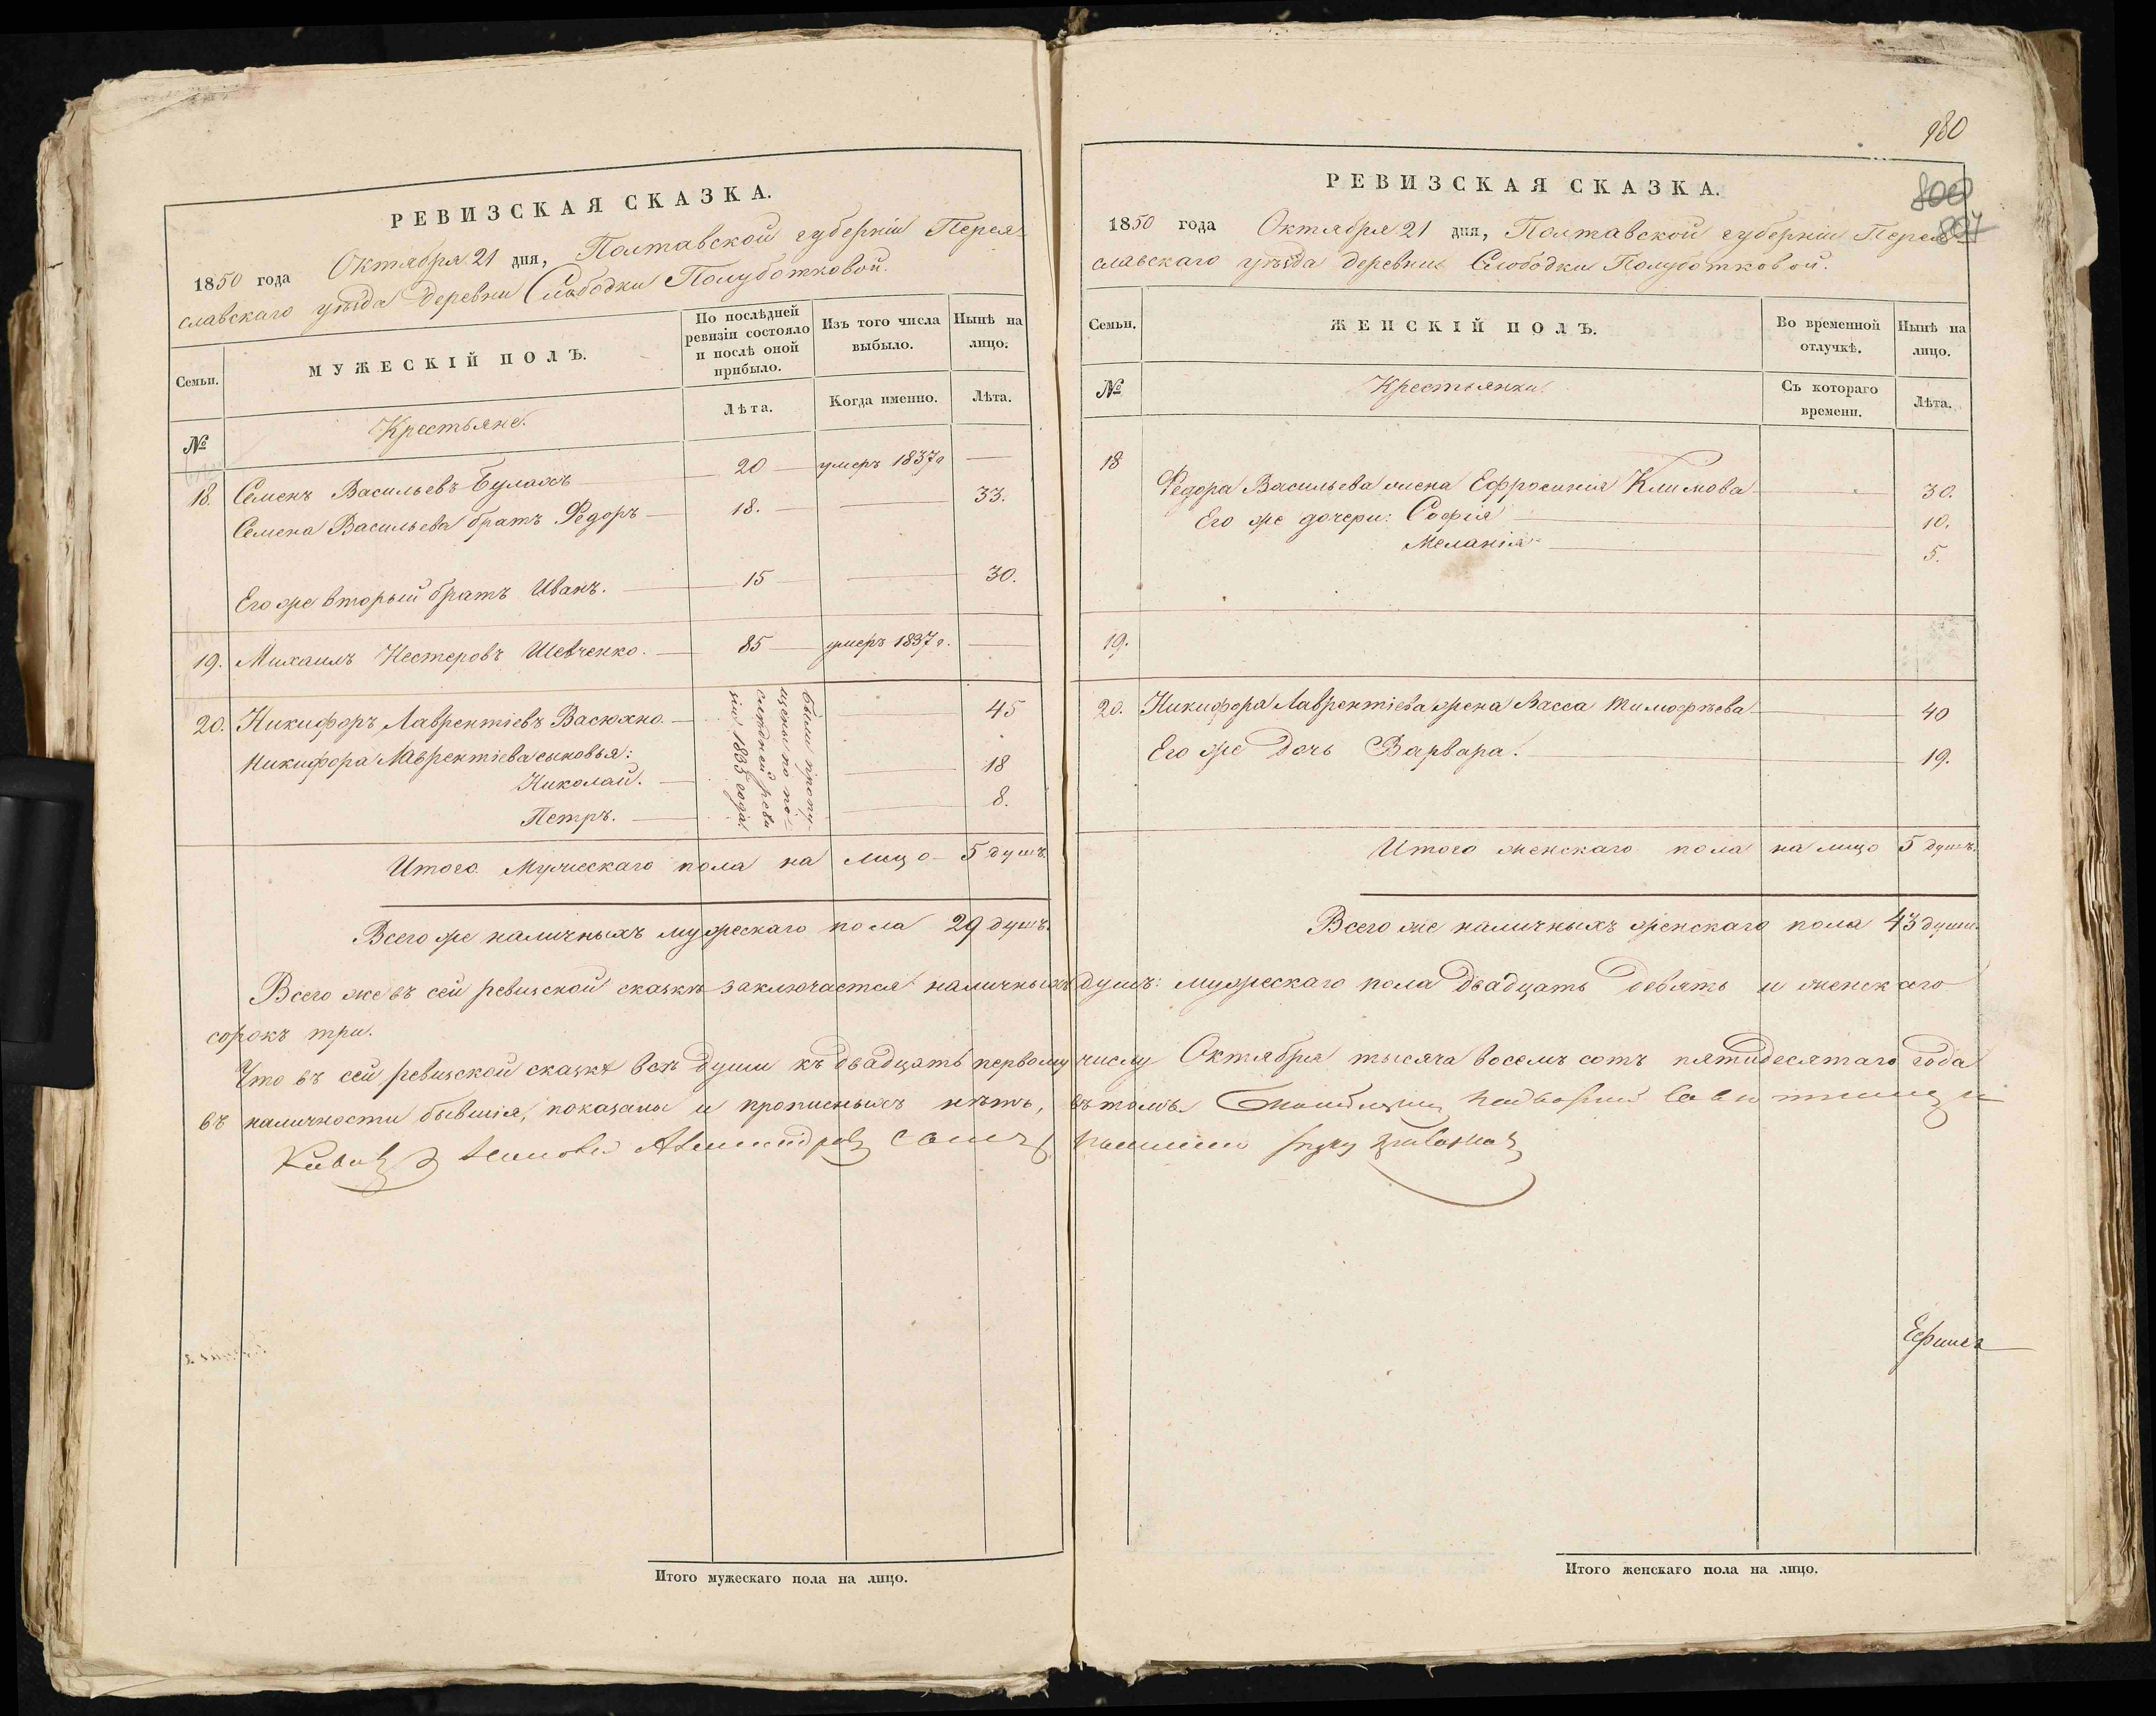 РЕВИЗСКАЯ СКАЗКА.
1850 года Октября 21 дня, Полтавской губерніи Перея-
славскаго уѣзда деревни Слободки Полуботковой.
Семьи.
МУЖЕСКІЙ ПОЛЪ.
По послѣдней ревизіи состояло и послѣ оной прибыло.
Изъ того числа выбыло.
Нынѣ на лицо.
№
Крестьяне.
Лѣта.
Когда именно.
Лѣта.
18. Семенъ Васильевъ Булахъ 20 умеръ 1837 г
Семена Васильева братъ Федоръ 18. 33.
Его же вторый братъ Иванъ. 15 30.
19. Михаилъ Нестеровъ Шевченко. 85 умеръ 1837 г.
20. Никифоръ Лаврентіевъ Васюхно. 45
Никифора Лаврентіева сыновья:
Николай. 18
Петръ. 8.
были пропу-
щены по по-
слѣдней реви
зіи 1835 года.
Итого Мужескаго пола на лицо 5 душъ.
Всего же наличныхъ мужескаго пола 29 душъ.
980
800
807
РЕВИЗСКАЯ СКАЗКА.
1850 года Октября 21 дня, Полтавской губерніи Перея-
славскаго уѣзда деревни Слободки Полуботковой.
Семьи.
ЖЕНСКІЙ ПОЛЪ.
Во временной отлучкѣ.
Нынѣ на лицо.
№
Крестьянки
Съ котораго времени.
Лѣта.
18 Федора Васильева жена Ефросинія Климова 30.
Его же дочери: Софія 10.
Меланія 5.
19.
20. Никифора Лаврентіева жена Васса Тимофѣева 40
Его же дочь Варвара. 19.
Итого женскаго пола на лицо 5 душъ.
Всего же наличныхъ женскаго пола 43 души.
Всего же въ сей ревизской сказкѣ заключается наличныхъ душъ: мужескаго пола двадцать девять и женскаго
сорокъ три.
Что въ сей ревизской сказкѣ всѣ души къ двадцать первому числу Октября тысяча восемъ сотъ пятидесятаго года
въ наличности бывшія, показаны и прописныхъ нѣтъ, въ томъ
Итого мужескаго пола на лицо.
Итого женскаго пола на лицо.